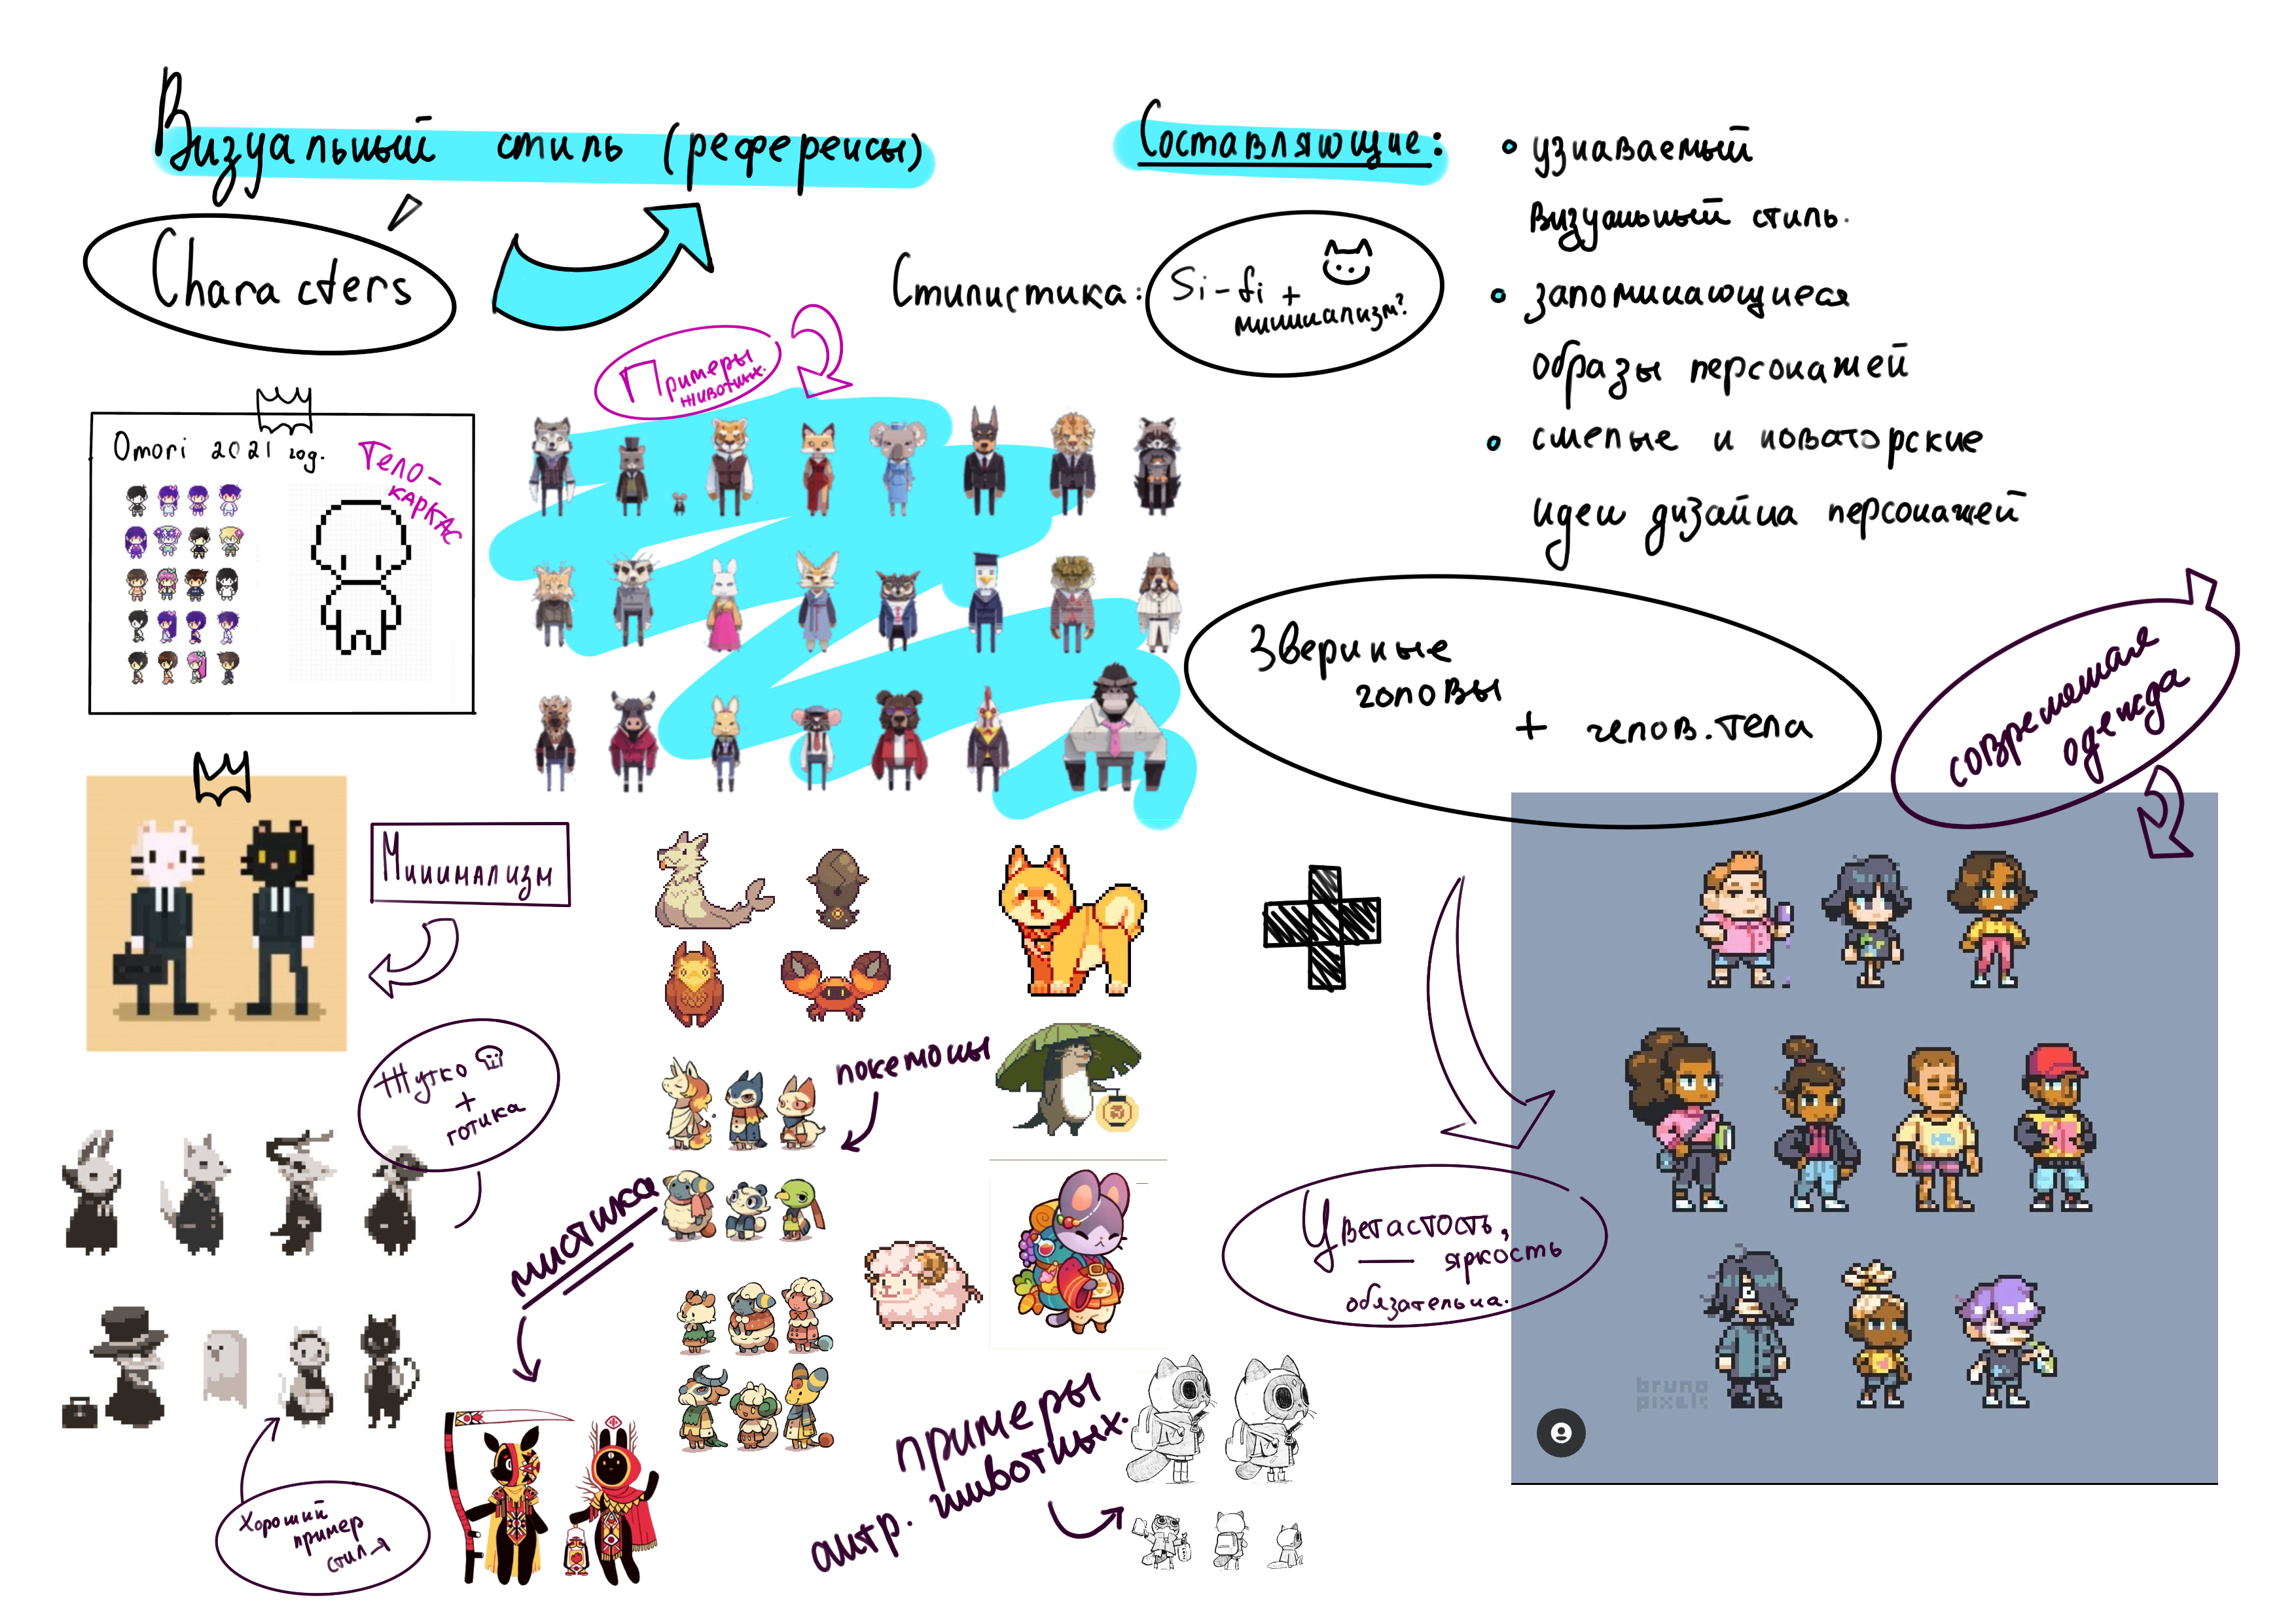 Визуальный стиль (референсы)
Characters
Составляющие:
• узнаваемый
визуальный стиль.
• запоминающиеся
образы персонажей
• смелые и новаторские
идеи дизайна персонажей
Стилистика:
Si-fi +
минимализм?
Примеры
животных.
Omori 2021 год.
Тело-
каркас
Звериные
головы
+ челов. тела
современная
одежда
Минимализм
Жутко
+
готика
покемоны
мистика
Цветастость,
яркость
обязательна.
примеры
антр. животных.
Хороший
пример
стиля
bruno
pixels